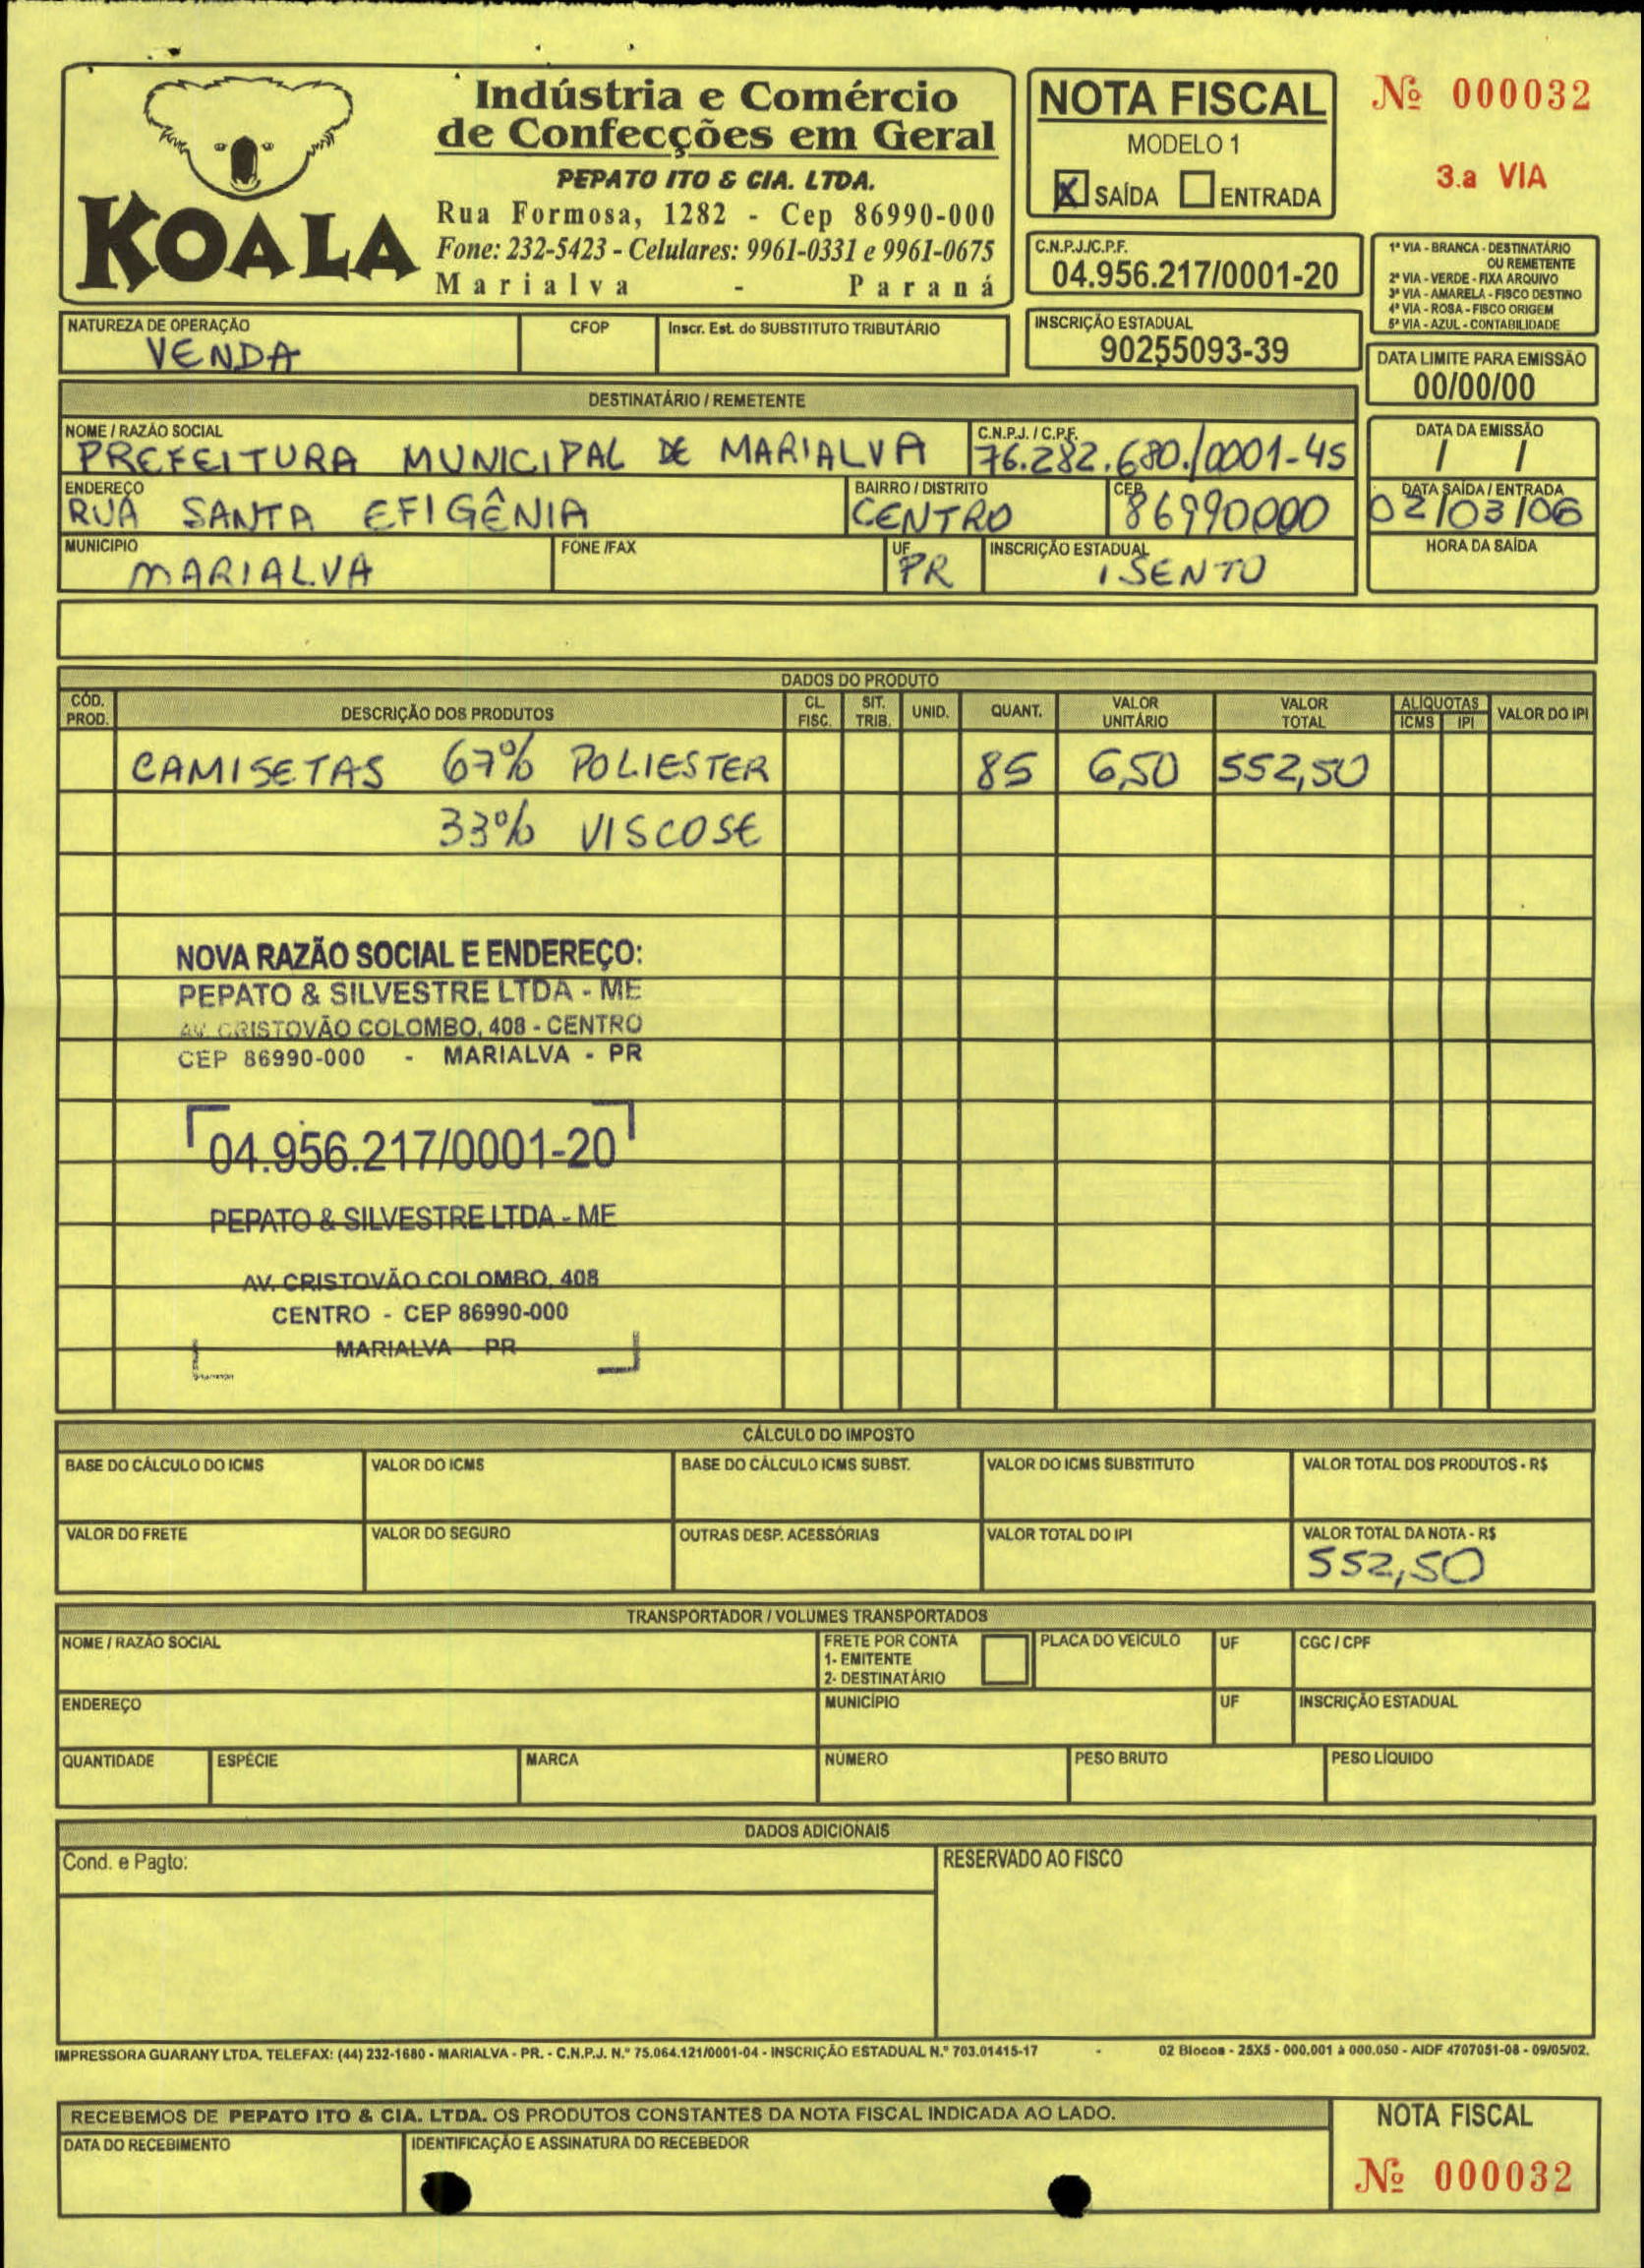 KOALA
Indústria e Comércio
de Confecções em Geral
PEPATO ITO & CIA. LTDA.
Rua Formosa, 1282 - Cep 86990-000
Fone: 232-5423 - Celulares: 9961-0331 e 9961-0675
Marialva - Paraná
NOTA FISCAL
MODELO 1
X SAÍDA ENTRADA
Nº 000032
3.a VIA
C.N.P.J./C.P.F.
04.956.217/0001-20
1ª VIA - BRANCA - DESTINATÁRIO
OU REMETENTE
2ª VIA - VERDE - FIXA ARQUIVO
3ª VIA - AMARELA - FISCO DESTINO
4ª VIA - ROSA - FISCO ORIGEM
5ª VIA - AZUL - CONTABILIDADE
NATUREZA DE OPERAÇÃO
VENDA
CFOP
Inscr. Est. do SUBSTITUTO TRIBUTÁRIO
INSCRIÇÃO ESTADUAL
90255093-39
DATA LIMITE PARA EMISSÃO
00/00/00
DESTINATÁRIO / REMETENTE
NOME / RAZÃO SOCIAL
PREFEITURA MUNICIPAL DE MARIALVA
C.N.P.J. / C.P.F.
76.282.680./0001-45
DATA DA EMISSÃO
/ /
ENDEREÇO
RUA SANTA EFIGÊNIA
BAIRRO / DISTRITO
CENTRO
CEP
86990000
DATA SAÍDA / ENTRADA
02/03/06
MUNICIPIO
MARIALVA
FONE /FAX
UF
PR
INSCRIÇÃO ESTADUAL
ISENTO
HORA DA SAÍDA
DADOS DO PRODUTO
CÓD. PROD. DESCRIÇÃO DOS PRODUTOS CL. FISC. SIT. TRIB. UNID. QUANT. VALOR UNITÁRIO VALOR TOTAL ALÍQUOTAS ICMS IPI VALOR DO IPI
CAMISETAS 67% POLIESTER 85 6,50 552,50
33% VISCOSE
NOVA RAZÃO SOCIAL E ENDEREÇO:
PEPATO & SILVESTRE LTDA - ME
AV. CRISTOVÃO COLOMBO, 408 - CENTRO
CEP 86990-000 - MARIALVA - PR
04.956.217/0001-20
PEPATO & SILVESTRE LTDA - ME
AV. CRISTOVÃO COLOMBO, 408
CENTRO - CEP 86990-000
MARIALVA - PR
CÁLCULO DO IMPOSTO
BASE DO CÁLCULO DO ICMS VALOR DO ICMS BASE DO CÁLCULO ICMS SUBST. VALOR DO ICMS SUBSTITUTO VALOR TOTAL DOS PRODUTOS - R$
VALOR DO FRETE VALOR DO SEGURO OUTRAS DESP. ACESSÓRIAS VALOR TOTAL DO IPI VALOR TOTAL DA NOTA - R$
552,50
TRANSPORTADOR / VOLUMES TRANSPORTADOS
NOME / RAZÃO SOCIAL
FRETE POR CONTA
1- EMITENTE
2- DESTINATÁRIO
PLACA DO VEÍCULO UF CGC / CPF
ENDEREÇO MUNICÍPIO UF INSCRIÇÃO ESTADUAL
QUANTIDADE ESPÉCIE MARCA NÚMERO PESO BRUTO PESO LÍQUIDO
DADOS ADICIONAIS
Cond. e Pagto:
RESERVADO AO FISCO
IMPRESSORA GUARANY LTDA. TELEFAX: (44) 232-1680 - MARIALVA - PR. - C.N.P.J. N.º 75.064.121/0001-04 - INSCRIÇÃO ESTADUAL N.º 703.01415-17 - 02 Blocos - 25X5 - 000.001 à 000.050 - AIDF 4707051-08 - 09/05/02.
RECEBEMOS DE PEPATO ITO & CIA. LTDA. OS PRODUTOS CONSTANTES DA NOTA FISCAL INDICADA AO LADO.
DATA DO RECEBIMENTO IDENTIFICAÇÃO E ASSINATURA DO RECEBEDOR
NOTA FISCAL
Nº 000032